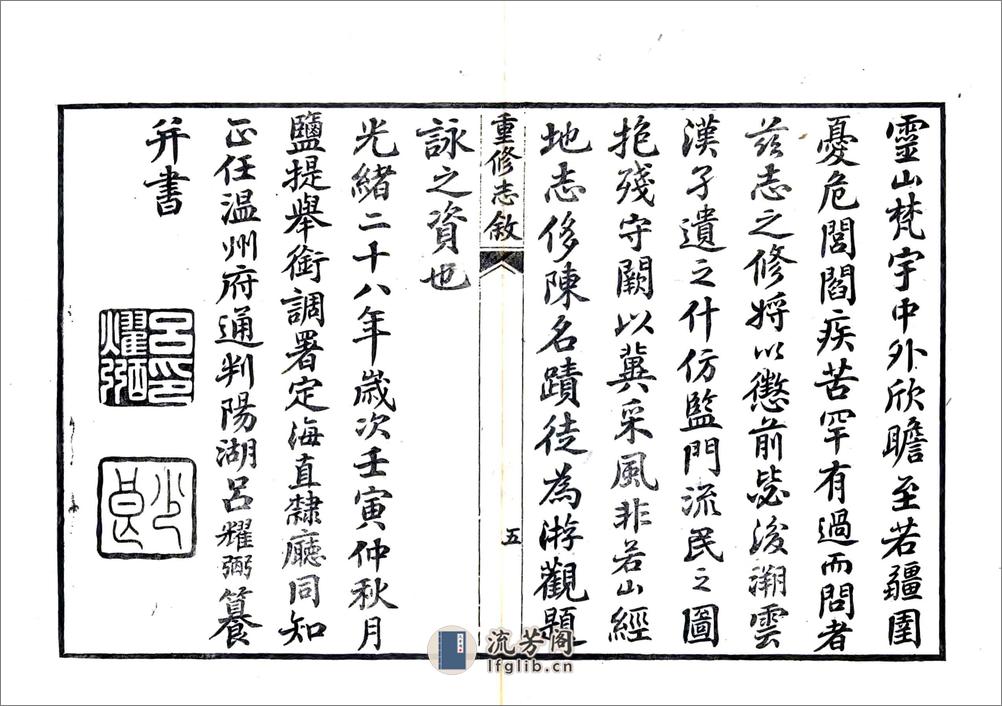 靈山梵宇中外欣瞻至若疆圉
憂危閭閻疾苦罕有過而問者
茲志之修將以懲前毖後溯雲
漢孑遺之什仿監門流民之圖
抱殘守闕以冀采風非若山經
地志侈陳名蹟徒為游觀題
重修志敘
五
詠之資也
光緒二十八年歲次壬寅仲秋月
鹽提舉銜調署定海直隸廳同知
正任温州府通判陽湖呂耀弼纂
并書
呂印耀弼
少良
流芳阁
lfglib.cn